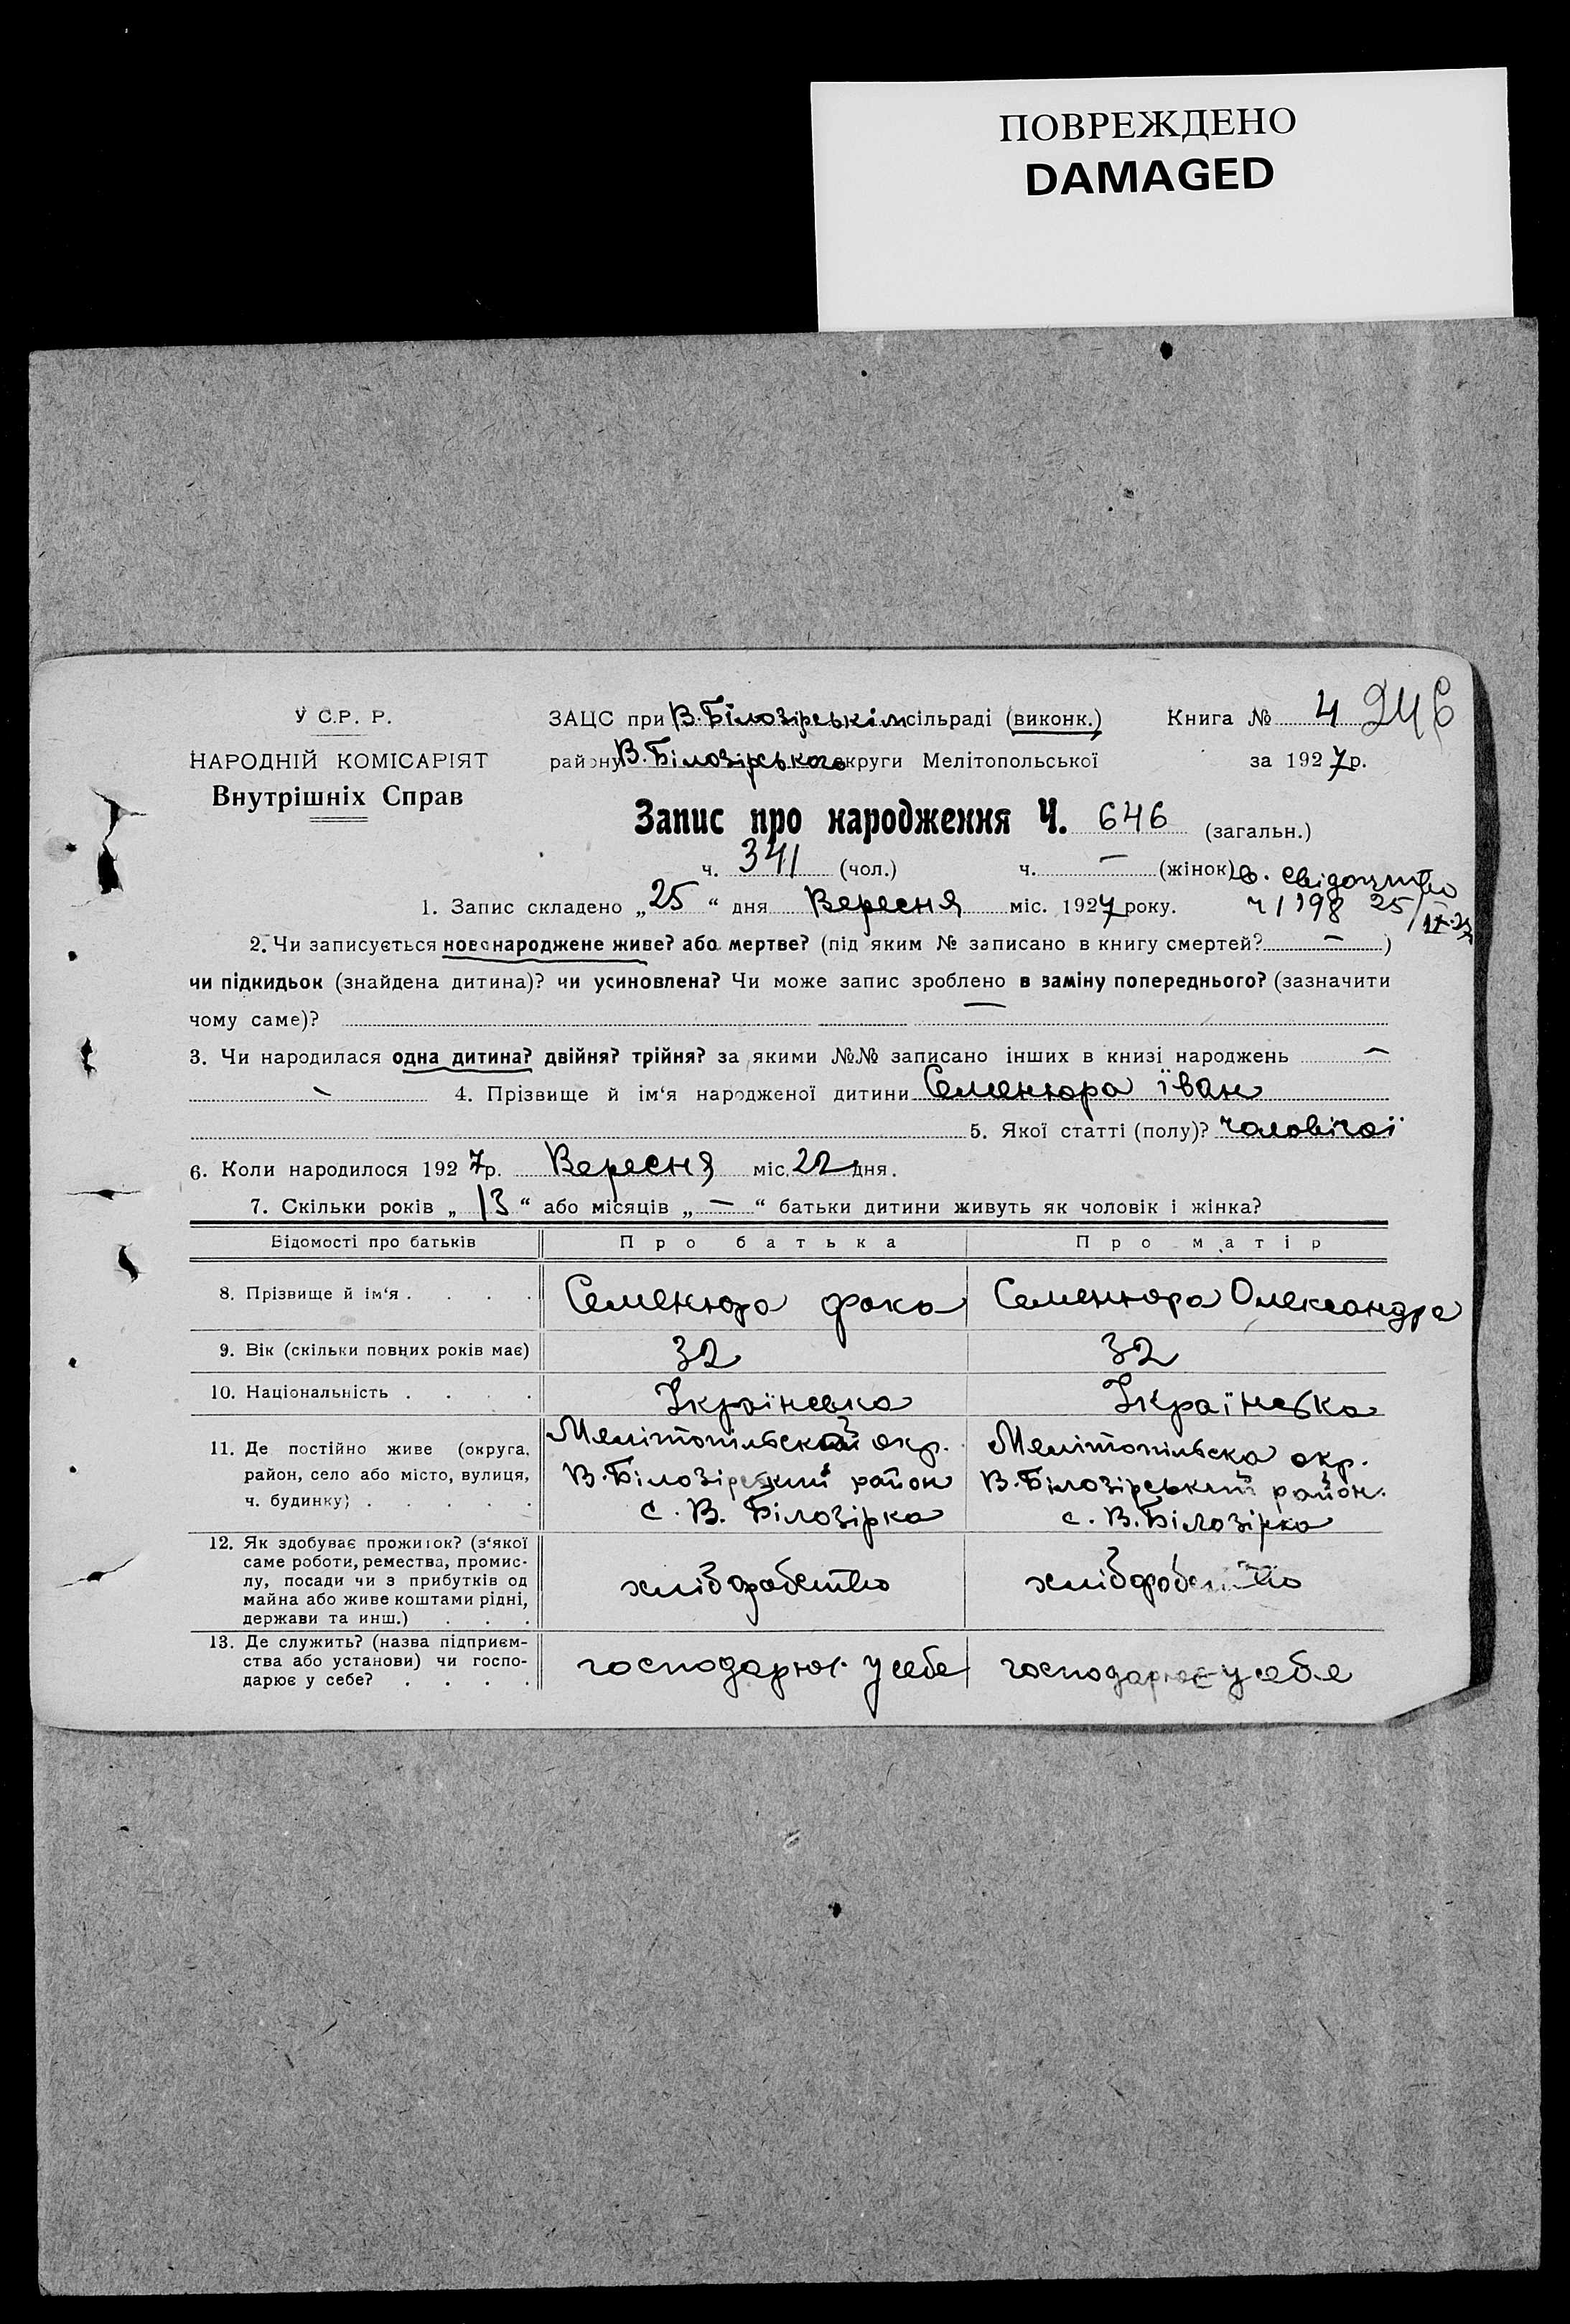 ПОВРЕЖДЕНО
DAMAGED
У С.Р. Р.
НАРОДНІЙ КОМІСАРІЯТ
Внутрішніх Справ
ЗАЦС при В.Білозірськім сільраді (виконк.)
району В.Білозірського округи Мелітопольської
Книга № 4 246
за 1927 р.
Запис про народження Ч. 646 (загальн.)
ч. 341 (чол.) ч. — (жінок)
в. свідоцтво
ч 1198 25/IX-27
1. Запис складено „25“ дня Вересня міс. 1927 року.
2. Чи записується новонароджене живе? або мертве? (під яким № записано в книгу смертей? — )
чи підкидьок (знайдена дитина)? чи усиновлена? Чи може запис зроблено в заміну попереднього? (зазначити
чому саме)? —
3. Чи народилася одна дитина? двійня? трійня? за якими №№ записано інших в книзі народжень —
4. Прізвище й ім‘я народженої дитини Семенюра іван
5. Якої статті (полу)? чоловічої
6. Коли народилося 1927 р. Вересня міс. 22 дня.
7. Скільки років „13“ або місяців „—“ батьки дитини живуть як чоловік і жінка?
Відомості про батьків Про батька Про матір
8. Прізвище й ім‘я . . . . Семенюра фока Семенюра Олександра
9. Вік (скільки повних років має) 32 32
10. Національність . . . . Українська Українська
11. Де постійно живе (округа,
район, село або місто, вулиця,
ч. будинку) . . . . .
Мелітопільской окр.
В.Білозірський район
с. В. Білозірка
Мелітопільска окр.
В.Білозірський район.
с. В.Білозірка
12. Як здобуває прожиток? (з‘якої
саме роботи, ремества, промис-
лу, посади чи з прибутків од
майна або живе коштами рідні,
держави та инш.) . . .
хліборобство
хліборобство
13. Де служить? (назва підприєм-
ства або установи) чи госпо-
дарює у себе? . . . .
господарює у себе
господарює у себе